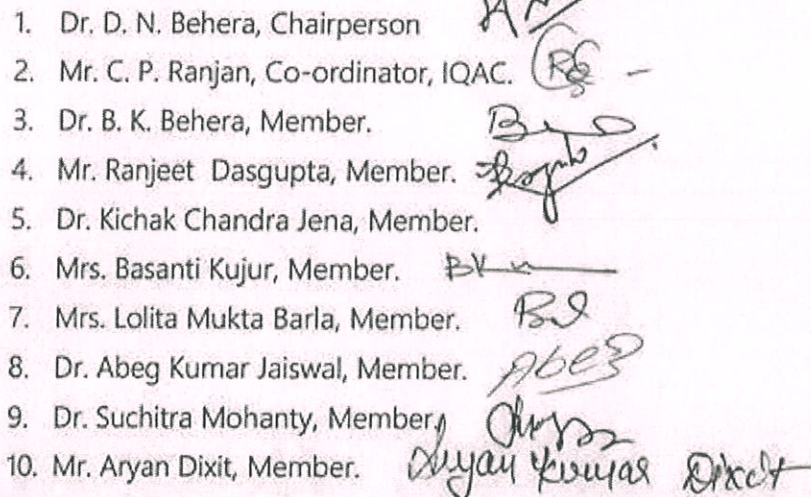 1. Dr. D. N. Behera, Chairperson
2. Mr. C. P. Ranjan, Co-ordinator, IQAC.
3. Dr. B. K. Behera, Member.
4. Mr. Ranjeet Dasgupta, Member.
5. Dr. Kichak Chandra Jena, Member.
6. Mrs. Basanti Kujur, Member.
7. Mrs. Lolita Mukta Barla, Member.
8. Dr. Abeg Kumar Jaiswal, Member. Abeg
9. Dr. Suchitra Mohanty, Member
10. Mr. Aryan Dixit, Member. Aryan Kumar Dixit